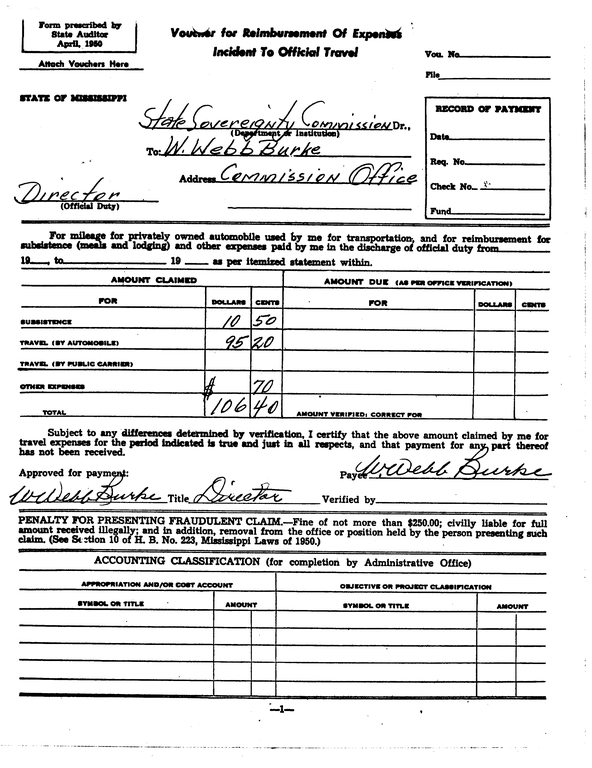 Form prescribed by
State Auditor
April, 1950
Attach Vouchers Here
Voucher for Reimbursement Of Expenses
Incident To Official Travel
Vou. No.
File
STATE OF MISSISSIPPI
State Sovereignty Commission Dr.,
(Department or Institution)
To: W. Webb Burke
Address Commission Office
Director
(Official Duty)
RECORD OF PAYMENT
Date
Req. No.
Check No.
Fund
For mileage for privately owned automobile used by me for transportation, and for reimbursement for
subsistence (meals and lodging) and other expenses paid by me in the discharge of official duty from
19 , to 19 as per itemized statement within.
AMOUNT CLAIMED
AMOUNT DUE (AS PER OFFICE VERIFICATION)
FOR DOLLARS CENTS FOR DOLLARS CENTS
SUBSISTENCE 10 50
TRAVEL (BY AUTOMOBILE) 95 20
TRAVEL (BY PUBLIC CARRIER)
OTHER EXPENSES $ 70
TOTAL 106 40 AMOUNT VERIFIED: CORRECT FOR
Subject to any differences determined by verification, I certify that the above amount claimed by me for
travel expenses for the period indicated is true and just in all respects, and that payment for any part thereof
has not been received.
Approved for payment: Payee W Webb Burke
W Webb Burke Title Director Verified by
PENALTY FOR PRESENTING FRAUDULENT CLAIM.—Fine of not more than $250.00; civilly liable for full
amount received illegally; and in addition, removal from the office or position held by the person presenting such
claim. (See Section 10 of H. B. No. 223, Mississippi Laws of 1950.)
ACCOUNTING CLASSIFICATION (for completion by Administrative Office)
APPROPRIATION AND/OR COST ACCOUNT OBJECTIVE OR PROJECT CLASSIFICATION
SYMBOL OR TITLE AMOUNT SYMBOL OR TITLE AMOUNT
—1—